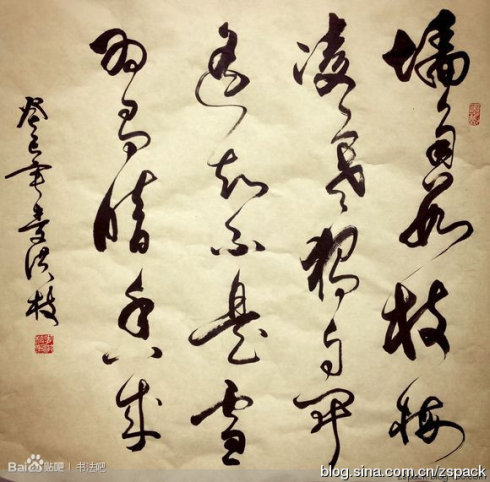 墻角數枝梅
凌寒獨自開
遥知不是雪
為有暗香來
癸巳年
Bai du 贴吧 | 书法吧
blog.sina.com.cn/zspack